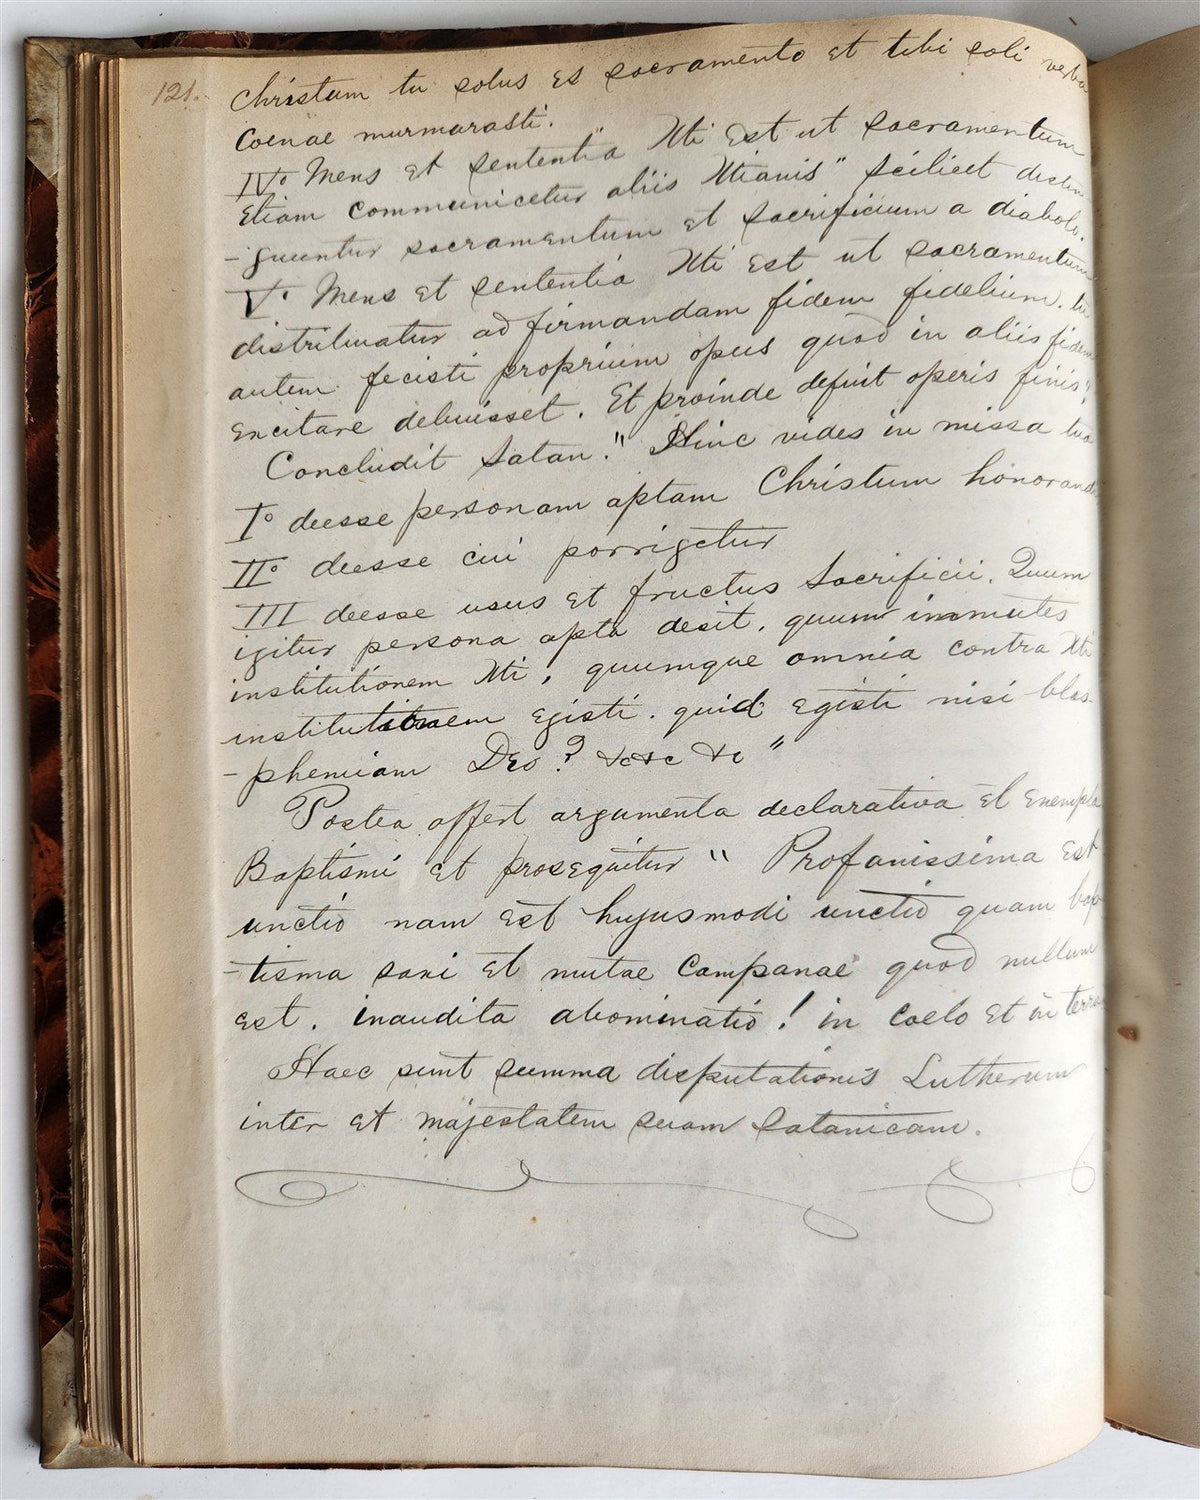 121.
Christum tu solus es sacramento et tibi soli verba
Coenae murmurasti.
IVo Mens et sententia "Xti est ut sacramentum
etiam communicetur aliis Xtianis" scilicet distin
-guuntur sacramentum et sacrificium a diabolo.
Vo Mens et sententia Xti est ut sacramentum
distribuatur ad firmandam fidem fidelium. tu
autem fecisti proprium opus quod in aliis fidem
excitare debuisset. Et proinde defuit operis finis"
Concludit Satan." Hinc vides in missa tua
Io deesse personam aptam Christum honorand
IIo deesse cui porrigetur
III deesse usus et fructus Sacrificii. Quum
igitur persona apta desit, quum immutes
institutionem Xti, quumque omnia contra Xti
institutionem egisti. quid egisti nisi blas-
-phemiam Deo? &c &c &c"
Postea offert argumenta declarativa et exempla
Baptismi et prosequitur " Profanissima est
unctio nam est hujusmodi unctio quam bap
-tisma saxi et mutae Campanae quod nullum
est. inaudita abominatio! in Coelo et in terra
Haec sunt summa disputationis Lutherum
inter et majestatem suam satanicam.